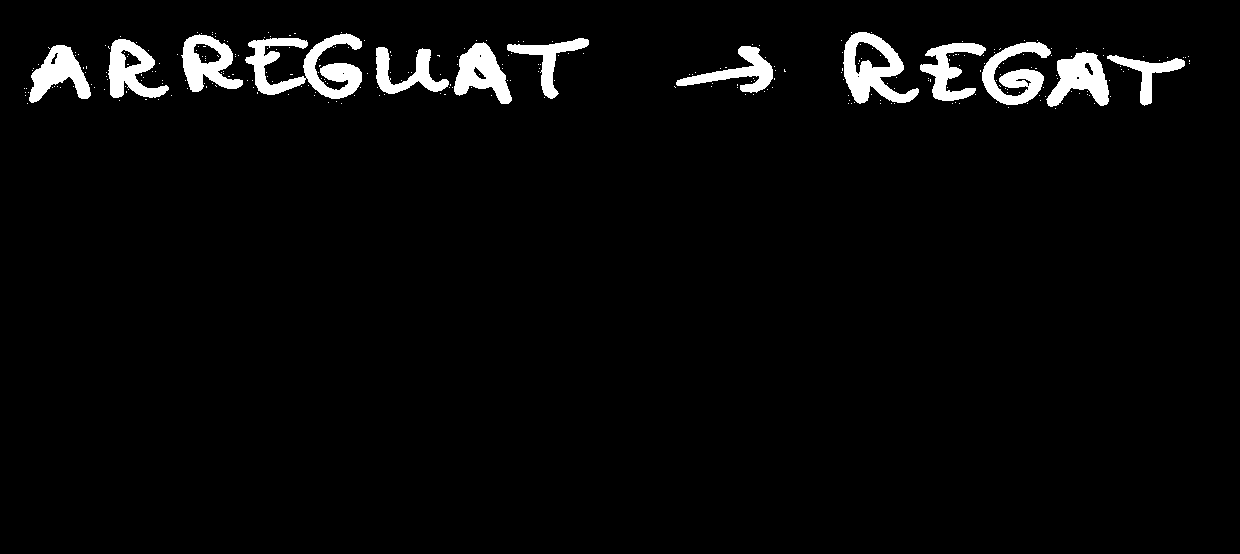 ARREGUAT → REGAT